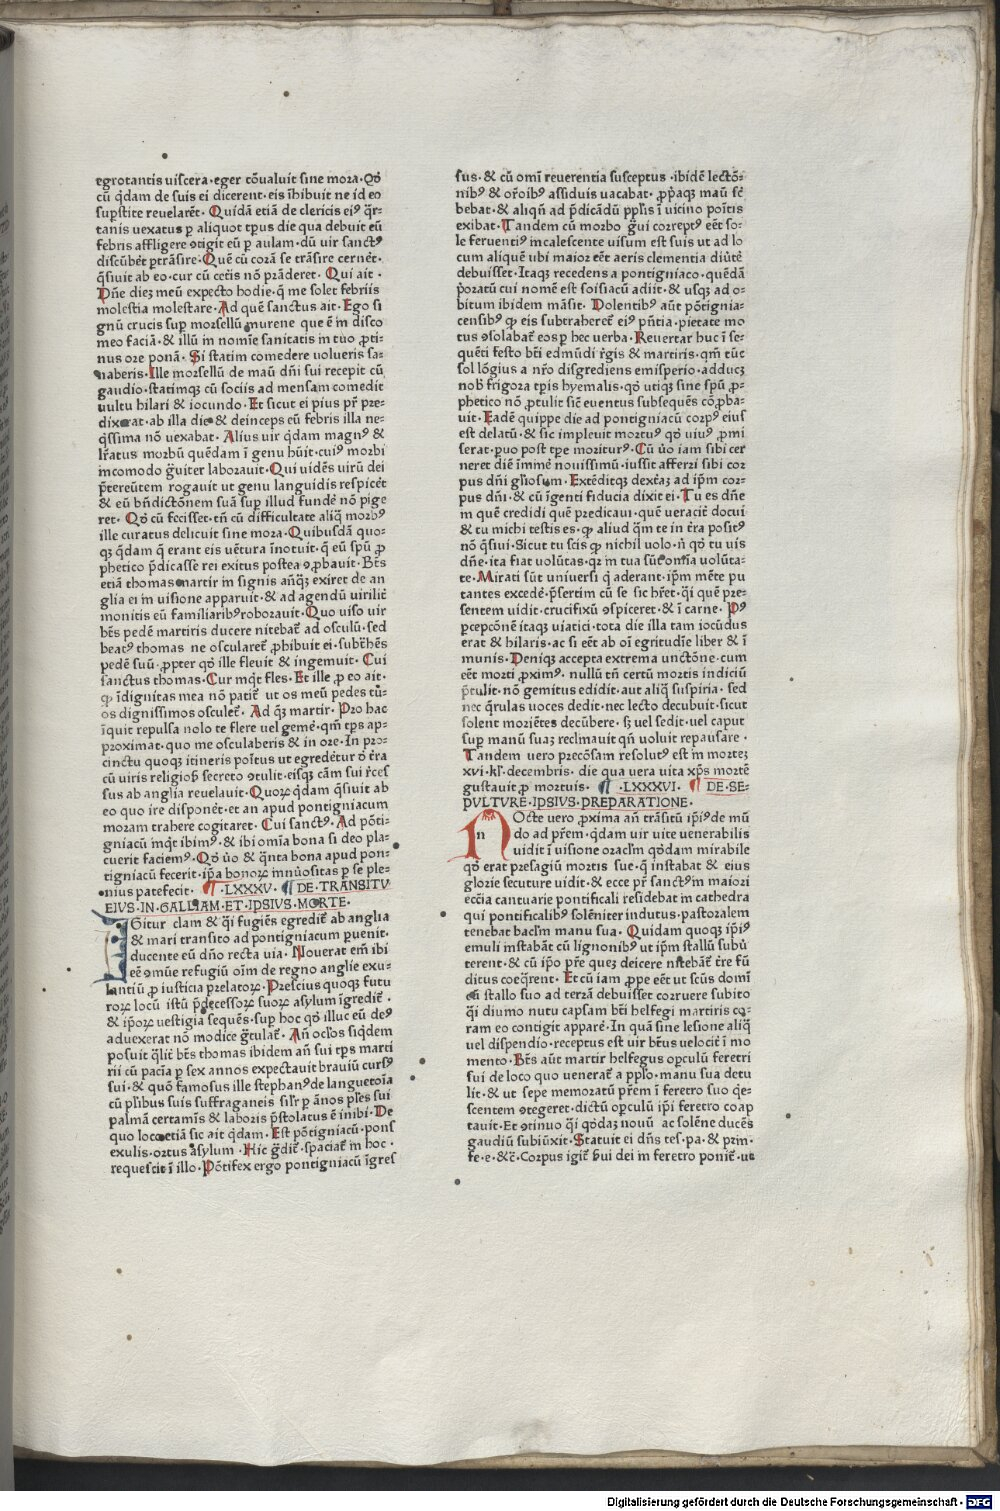 egrotantis uiscera·eger cōualuit sine mora·Qđ
cū q̄dam de suis ei dicerent·eis īhibuit ne id eo
sup̱stite reuelarēt· Quidā etiā de clericis ei⁹ q̄r-
tanis uexatus p̱ aliquot tp̄us die qua debuit eū
febris affligere ꝯtigit eū p̱ aulam·dū uir sanct⁹
discūbēt p̱trāsire·Quē cū corā se trāsire cernēt·
q̄siuit ab eo·cur cū cetīs nō prāderet· Qui ait·
Dn̄e dieꝫ meū expecto hodie·q̄ me solet febriis
molestia molestare·Ad quē sanctus ait·Ego si
gnū crucis sup̱ morsellū murene que ē in disco
meo faciā·& illū in nomīe sanitatis in tuo ꝓti-
nus ore ponā· Si statim comedere uolueris sa-
naberis·Ille morsellū de maū dn̄i sui recepit cū
gaudio·statimqꝫ cū sociis ad mensam comedit
uultu hilari & iocundo·Et sicut ei pius pr̄ pre-
dixerat·ab illa die & deinceps eū febris illa ne-
q̄ssima nō uexabat· Alius uir q̄dam magn⁹ &
lr̄atus morbū quēdam ī genu hūit·cui⁹ morbi
incomodo ḡuiter laborauit·Qui uidēs uirū dei
p̄tereūtem rogauit ut genu languidis respicēt
& eū bn̄dictōnem suā sup̱ illud fundē nō pige
ret· Qđ cū fecisset·tn̄ cū difficultate aliq̄ morb⁹
ille curatus delicuit sine mora·Quibusdā quo-
qꝫ q̄dam q̄ erant eis uētura īnotuit·q̄ eū spū ꝓ
phetico p̄dicasse rei exitus postea ꝯꝓbauit·Bt̄s
etiā thomas martir in signis anq̄ꝫ exiret de an
glia ei in uisione apparuit·& ad agendū uirilit̄
monitis eū familiarib⁹roborauit·Quo uiso uir
bt̄s pedē martiris ducere nitebat̄ ad osculū·sed
beat⁹ thomas ne oscularet̄ ꝓhibuit ei·subt̄hēs
pedē suū·ꝓpter qđ ille fleuit & ingemuit· Cui
sanctus thomas·Cur mq̄t fles·Et ille ꝓ eo ait·
ꝙ īdignitas mea nō patit̄ ut os meū pedes tū-
os dignissimos osculet̄· Ad qꝫ martir·Pro hac
īquit repulsa nolo te flere uel gemē·qm̄ tp̄s ap-
proximat·quo me osculaberis & in ore·In pro-
cinctu quoqꝫ itineris positus ut egredet̄ur đ t̄ra
cū uiris religioſ secreto ꝯtulit·eisqꝫ cām sui r̄ces
sus ab anglia reuelauit·Quoꝝ q̄dam q̄siuit ab
eo quo ire disponēt·et an apud pontigniacum
moram trahere cogitaret· Cui sanct⁹·Ad pōti-
gniacū mq̄t ibim⁹·& ibi omīa bona si deo pla-
cuerit faciem⁹·Qđ ūo & q̄nta bona apud pon-
tigniacū fecerit·ip̄a bonoꝝ mnūositas p̱ se ple-
nius patefecit· ¶ ·LXXXV· ¶ DE·TRANSITV
EIVS·IN·GALLIAM·ET·IPSIVS·MORTE·
IGitur clam & q̄i fugiēs egredit̄ ab anglia
& mari transito ad pontigniacum p̱uenit·
ducente eū dn̄o recta uia· Nouerat em̄ ibi
eē ꝯmūe refugiū oīm de regno anglie exu-
lantiū ꝓ iusticia prelatoꝝ·Prescius quoqꝫ futu
roꝝ locū istū p̄decessoꝝ suoꝝ asylum īgredit̄·
& ip̄oꝝ uestigia sequēs·sup̱ hoc qđ illuc eū de⁹
aduexerat nō modice ḡtulat̄· An̄ oclos siq̄dem
posuit q̄lit̄ bt̄s thomas ibidem an̄ sui tp̄s marti
rii cū pacīa p̱ sex annos expectauit brauiū curs⁹
sui·& quō famosus ille stephan⁹de languetoīa
cū pl̄ibus suis suffraganeis sil̄r p̱ ānos pl̄es sui
palmā certamīs & laboris p̄stolatus ē inibi·De
quo loco etiā sic ait q̄dam· Est pōtigniacū·pons
exulis·ortus asylum·Hic ḡdit̄·spaciat̄ in hoc·
requescit ī illo·Pōtifex ergo pontigniacū īgres
sus·& cū omī reuerentia susceptus·ibidē lectō-
nib⁹ & or̄oib⁹ assiduis uacabat·ꝓp̄aqꝫ maū sc̄
bebat·& aliqn̄ ad p̄dicādū pp̄lis ī uicino poītis
exibat·Tandem cū morbo ḡui corrept⁹ eēt so-
le feruenti⁹ incalescente uisum est suis ut ad lo
cum aliquē ubi maior eēt aeris clementia diūtē
debuisset·Itaqꝫ recedens a pontigniaco·quēdā
p̄oratū cui nomē est soisiacū adiit·& usqꝫ ad o-
bitum ibidem māsit· Dolentib⁹ aūt pōtignia-
censib⁹ ꝙ eis subtraheret̄ ei⁹ pn̄tia·pietate mo
tus ꝯsolabat̄ eos p̱ hec uerba·Reuertar huc ī se-
quēti festo bt̄i edmūdi r̄gis & martiris·qm̄ tūc
sol lōgius a nr̄o disgrediens emisperio·adducꝫ
nob̄ frigora tp̄is hyemalis·qđ utiqꝫ sine spū ꝓ-
phetico nō ꝓtulit sic̄ euentus subsequēs cōꝓba-
uit·Eadē quippe die ad pontigniacū corp⁹ eius
est delatū·& sic impleuit mortu⁹ qđ uiu⁹ ꝓmi
serat·p̱uo post tp̄e moritur⁹·Cū ūo iam sibi cer
neret diē īmmē nouissimū·iussit afferri sibi cor
pus dn̄i gl̄iosum·Extēditqꝫ dext̄aꝫ ad ip̄m cor-
pus dn̄i·& cū īgenti fiducia dixit ei·Tu es dn̄e
m quē credidi quē predicaui·quē ueracit̄ docui
& tu michi testis es·ꝙ aliud q̄m te in t̄ra posit⁹
nō q̄siui·Sicut tu scis ꝙ nichil uolo·n̄ qđ tu uis
dn̄e·ita fiat uolūtas·qꝛ in tua sūt om̄ia uolūta-
te·Mirati sūt uniuersi q̄ aderant·ip̄m mēte pu
tantes excedē·p̄sertim cū se sic hr̄et·q̄i quē pre-
sentem uidit·crucifixū ꝯspiceret·& ī carne· P⁹
p̱cepcōnē itaqꝫ uiatici·tota die illa tam iocūdus
erat & hilaris·ac si eēt ab oī egritudīe liber & ī
munis·Deniqꝫ accepta extrema unctōne·cum
eēt morti ꝓxim⁹ nullū tn̄ certū mortis indiciū
p̄tulit·nō gemitus edidit·aut aliq̄ suspiria· sed
nec q̄rulas uoces dedit·nec lecto decubuit·sicut
solent moriētes decūbere·sꝫ uel sedit·uel caput
sup̱ manū suaꝫ reclmauit qn̄ uoluit repausare·
Tandem uero precōsam resolut⁹ est in morteꝫ
xvi·kl̄·decembris·die qua uera uita xp̄s mortē
gustauit ꝓ mortuis· ¶ ·LXXXVI· ¶ DE·SE-
PVLTVRE·IPSIVS·PREPARATIONE·
NOcte uero ꝓxima an̄ trāsitū ip̄i⁹de mū
do ad pr̄em·q̄dam uir uite uenerabilis
uidit ī uisione oraclm̄ qđdam mirabile
qđ erat presagiū mortis sue·q̄ instabat & eius
glorie secuture uidit·& ecce pr̄ sanct⁹in maiori
ecc̄ia cantuarie pontificali residebat in cathedra
qui pontificalib⁹ solēniter indutus·pastoralem
tenebat baclm̄ manu sua· Quidam quoqꝫ ip̄i⁹
emuli instabāt cū lignonib⁹ ut ip̄m stallū subū
terent·& cū ip̄o pr̄e queꝫ deicere nitebāt̄ t̄re fū
ditus coeq̄rent· Et cū iam ꝓpe eēt ut sc̄us domī
cū stallo suo ad terrā debuisset corruere subito
q̄i diumo nutu capsam bt̄i helfegi martiris co-
ram eo contigit apparē·In quā sine lesione aliq̄
uel dispendio·receptus est uir bt̄us uelocit̄ ī mo
mento·Bt̄s aūt martir helfegus op̱culū feretri
sui de loco quo uenerat̄ a pp̄lo·manu sua detu
lit·& ut sepe memoratū pr̄em ī feretro suo q̄e-
scentem ꝯtegeret·dictū op̱culū ip̄i feretro coap
tauit·Et ꝯtinuo q̄i qđdaꝫ nouū ac solēne ducēs
gaudiū subiūxit·Statuit ei dn̄s tes·pa·& prin·
fe·e·&c̄·Corpus igit̄ s̄ui dei in feretro ponit̄·ut
Digitalisierung gefördert durch die Deutsche Forschungsgemeinschaft - DFG